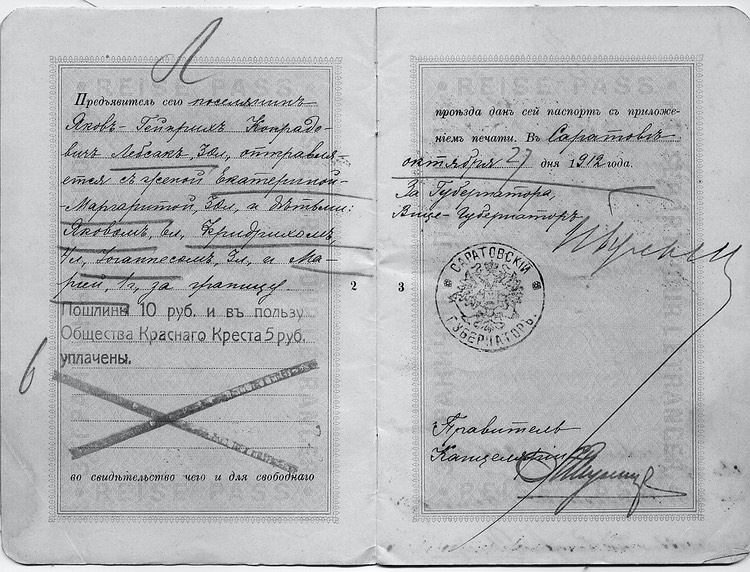 Л
REISE-PASS
Предъявитель сего поселянин
Яков-Гейнрих Конрадо-
вич Лебсак, 30л, отправля-
ется с женой Екатериной-
Маргаритой, 30л, и детьми:
Яковом, 6л, Фридрихом,
4л, Иоганнесом, 3л, и Ма-
рией 1г, за границу.
Пошлины 10 руб. и въ пользу
Общества Краснаго Креста 5 руб.
уплачены.
6
во свидѣтельство чего и для свободнаго
REISE-PASS
2
3
REISE-PASS
проѣзда данъ сей паспортъ съ приложе-
ніемъ печати. Въ Саратовѣ
октября 27 дня 1912 года.
За Губернатора,
Вице-Губернаторъ
САРАТОВСКІЙ
ГУБЕРНАТОРЪ.
Правитель
Канцеляріи
REISE-PASS